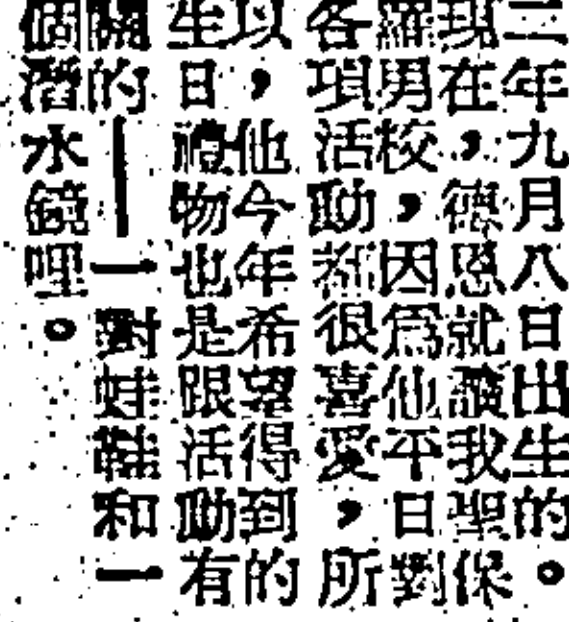 二年九月八日出生的。
現在，德恩就讀我聖保
羅男校，因爲他平日對
各項活動都很喜愛，所
以，他今年希望得到的
生日禮物也是跟活動有
關的——一對蛙鞋和一
個潛水鏡哩。